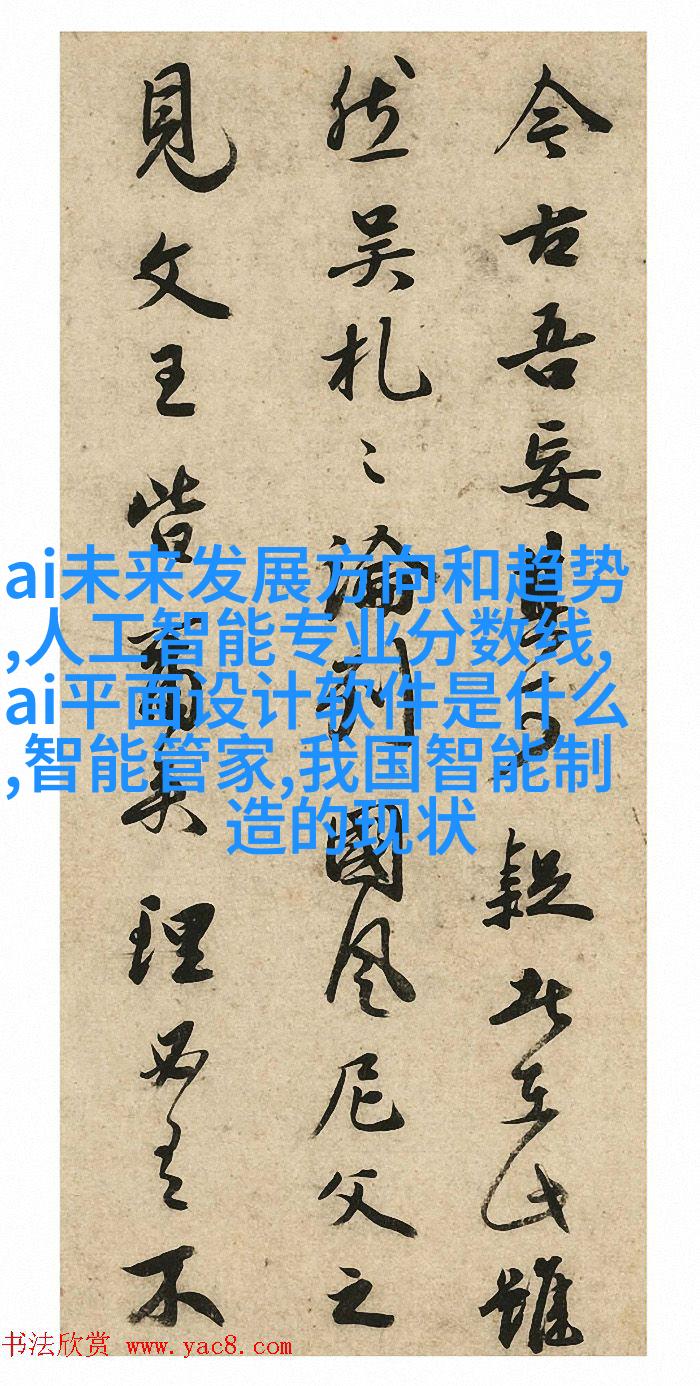 今古吾妄疑者在此雖
然吴札〻論列國風尼父之
見文王皆矣理必有不
ai未来发展方向和趋势
,人工智能专业分数线,
ai平面设计软件是什么
,智能管家,我国智能制
造的现状
书法欣赏 www.yac8.com